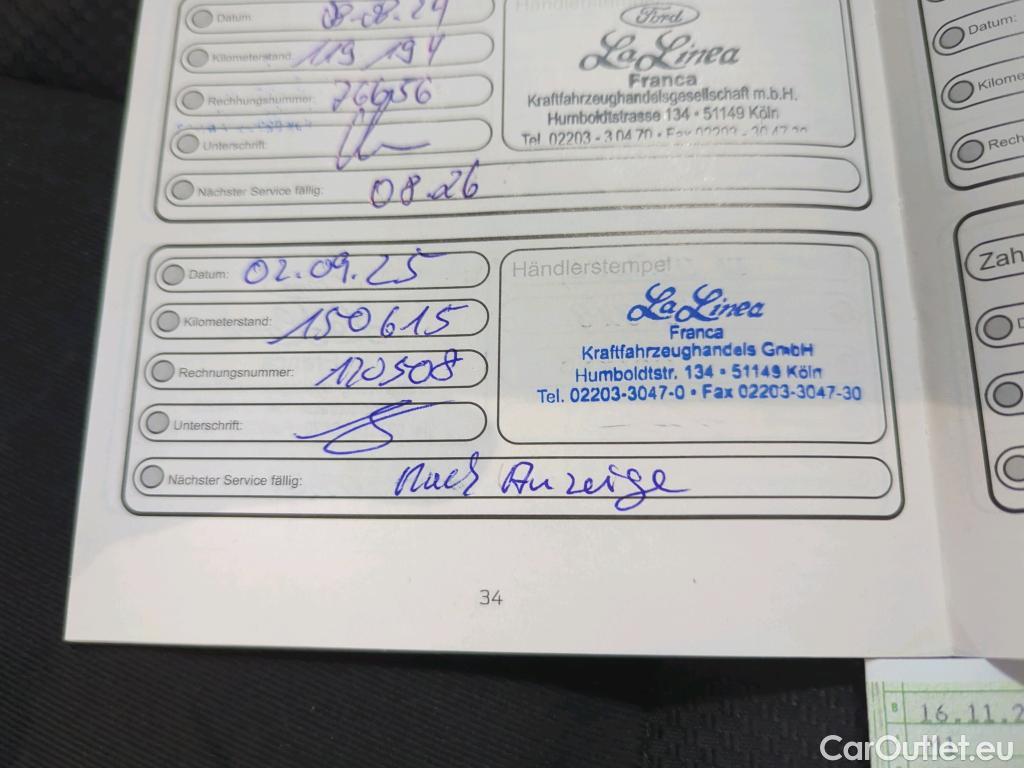 Datum: 08.08.24
Kilometerstand: 119 194
Rechnungsnummer: 76656
Unterschrift:
Nächster Service fällig: 08.26
Händlerstempel
Ford
La Linea
Franca
Kraftfahrzeughandelsgesellschaft m.b.H.
Humboldtstrasse 134 • 51149 Köln
Tel. 02203 - 3 04 70 • Fax 02203 - 30 47 30
Datum: 02.09.25
Kilometerstand: 150615
Rechnungsnummer: 120508
Unterschrift:
Nächster Service fällig: Nach Anzeige
Händlerstempel
La Linea
Franca
Kraftfahrzeughandels GmbH
Humboldtstr. 134 • 51149 Köln
Tel. 02203-3047-0 • Fax 02203-3047-30
34
Datum:
Kilome
Rech
Zah
D
B 16.11.2
CarOutlet.eu